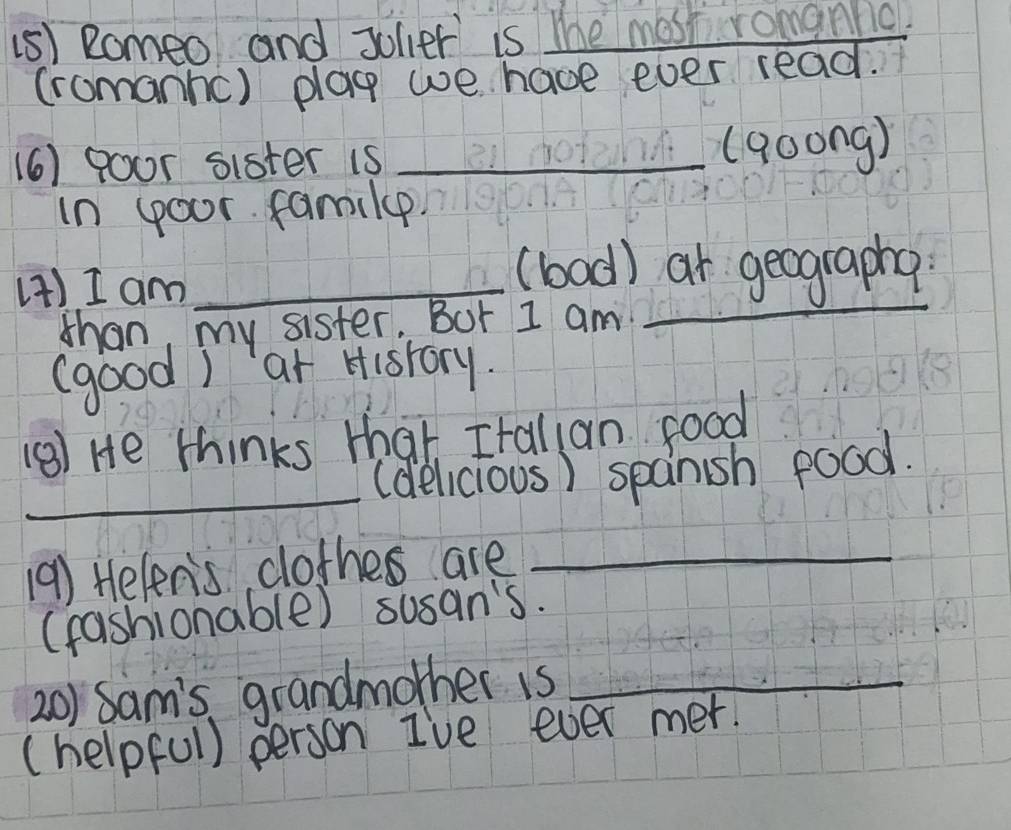 15) Romeo and Juliet is the most romantic.
(romantic) play we have ever read.
16) your sister is ____________ (young)
in your family.
17) I am ____________ (bad) at geography.
than my sister. But I am ____________
(good) at History.
18) He thinks that Italian food
____________ (delicious) spanish food.
19) Helen's clothes are ____________
(fashionable) susan's.
20) Sam's grandmother is ____________
(helpful) person I've ever met.